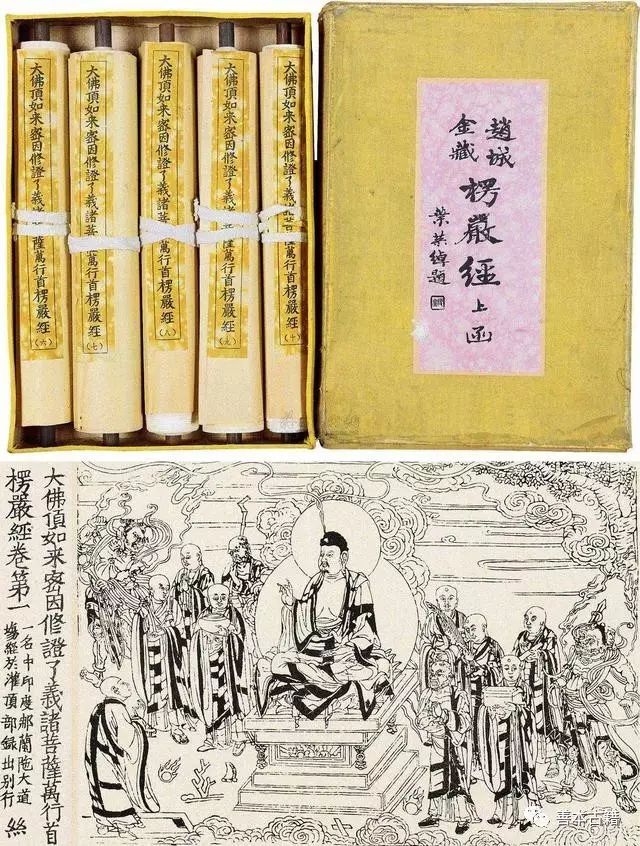 大佛頂如来密因修證了義諸菩薩萬行首楞嚴經（六）
大佛頂如来密因修證了義諸菩薩萬行首楞嚴經（七）
大佛頂如来密因修證了義諸菩薩萬行首楞嚴經（八）
大佛頂如来密因修證了義諸菩薩萬行首楞嚴經（九）
大佛頂如来密因修證了義諸菩薩萬行首楞嚴經（十）
趙城
金藏
楞嚴經上函
葉恭綽題
大佛頂如来密因修證了義諸菩薩萬行首
楞嚴經卷第一
一名中印度那蘭陁大道
場經於灌頂部錄出別行
絲
善本古籍